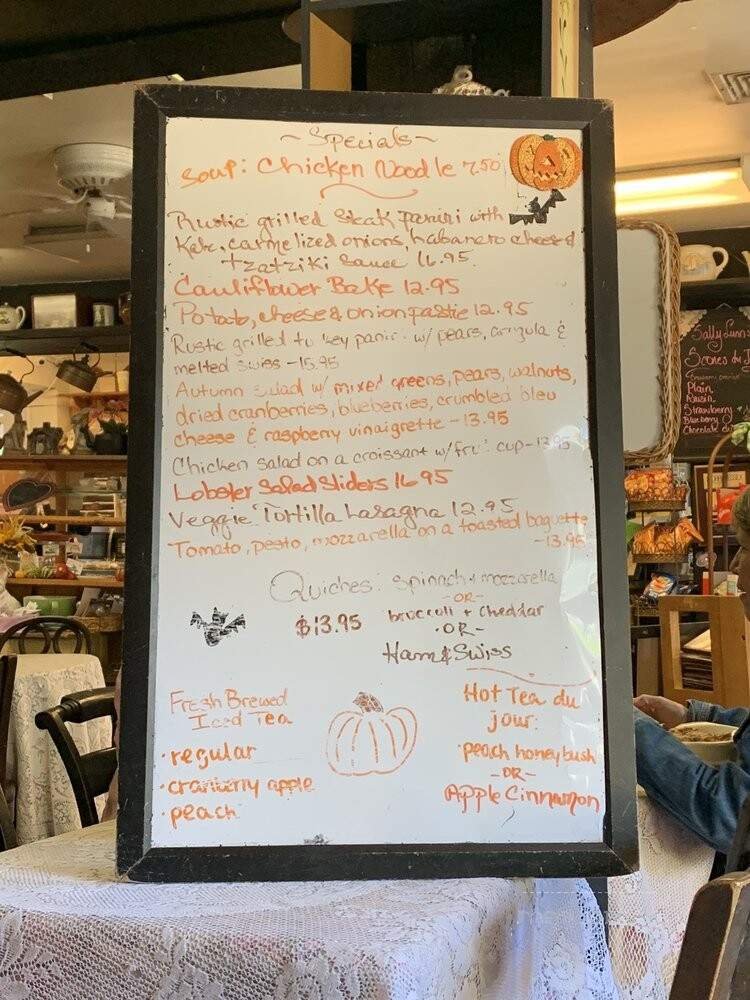 ~ Specials ~
Soup: Chicken Noodle 7.50
Rustic grilled Steak panini with
Kale, carmelized onions, habanero cheese &
tzatziki sauce 16.95
Cauliflower Bake 12.95
Potato, cheese & onion pastie 12.95
Rustic grilled tu key panini w/ pears, arugula &
melted swiss - 15.95
Autumn salad w/ mixed greens, pears, walnuts,
dried cranberries, blueberries, crumbled bleu
cheese & raspberry vinaigrette - 13.95
Chicken salad on a croissant w/ fruit cup - 13.95
Lobster Salad Sliders 16.95
Veggie Tortilla Lasagna 12.95
Tomato, pesto, mozzarella on a toasted baguette
- 13.95
Quiches: spinach + mozzarella
-OR-
$13.95 broccoli + cheddar
-OR-
Ham & Swiss
Fresh Brewed
Iced Tea
• regular
• cranberry apple
• peach
Hot Tea du
jour:
• peach honeybush
-OR-
Apple Cinnamon
Sally Lunn's
Scones du J
Plain
Raisin
Strawberry
Blueberry
Chocolate